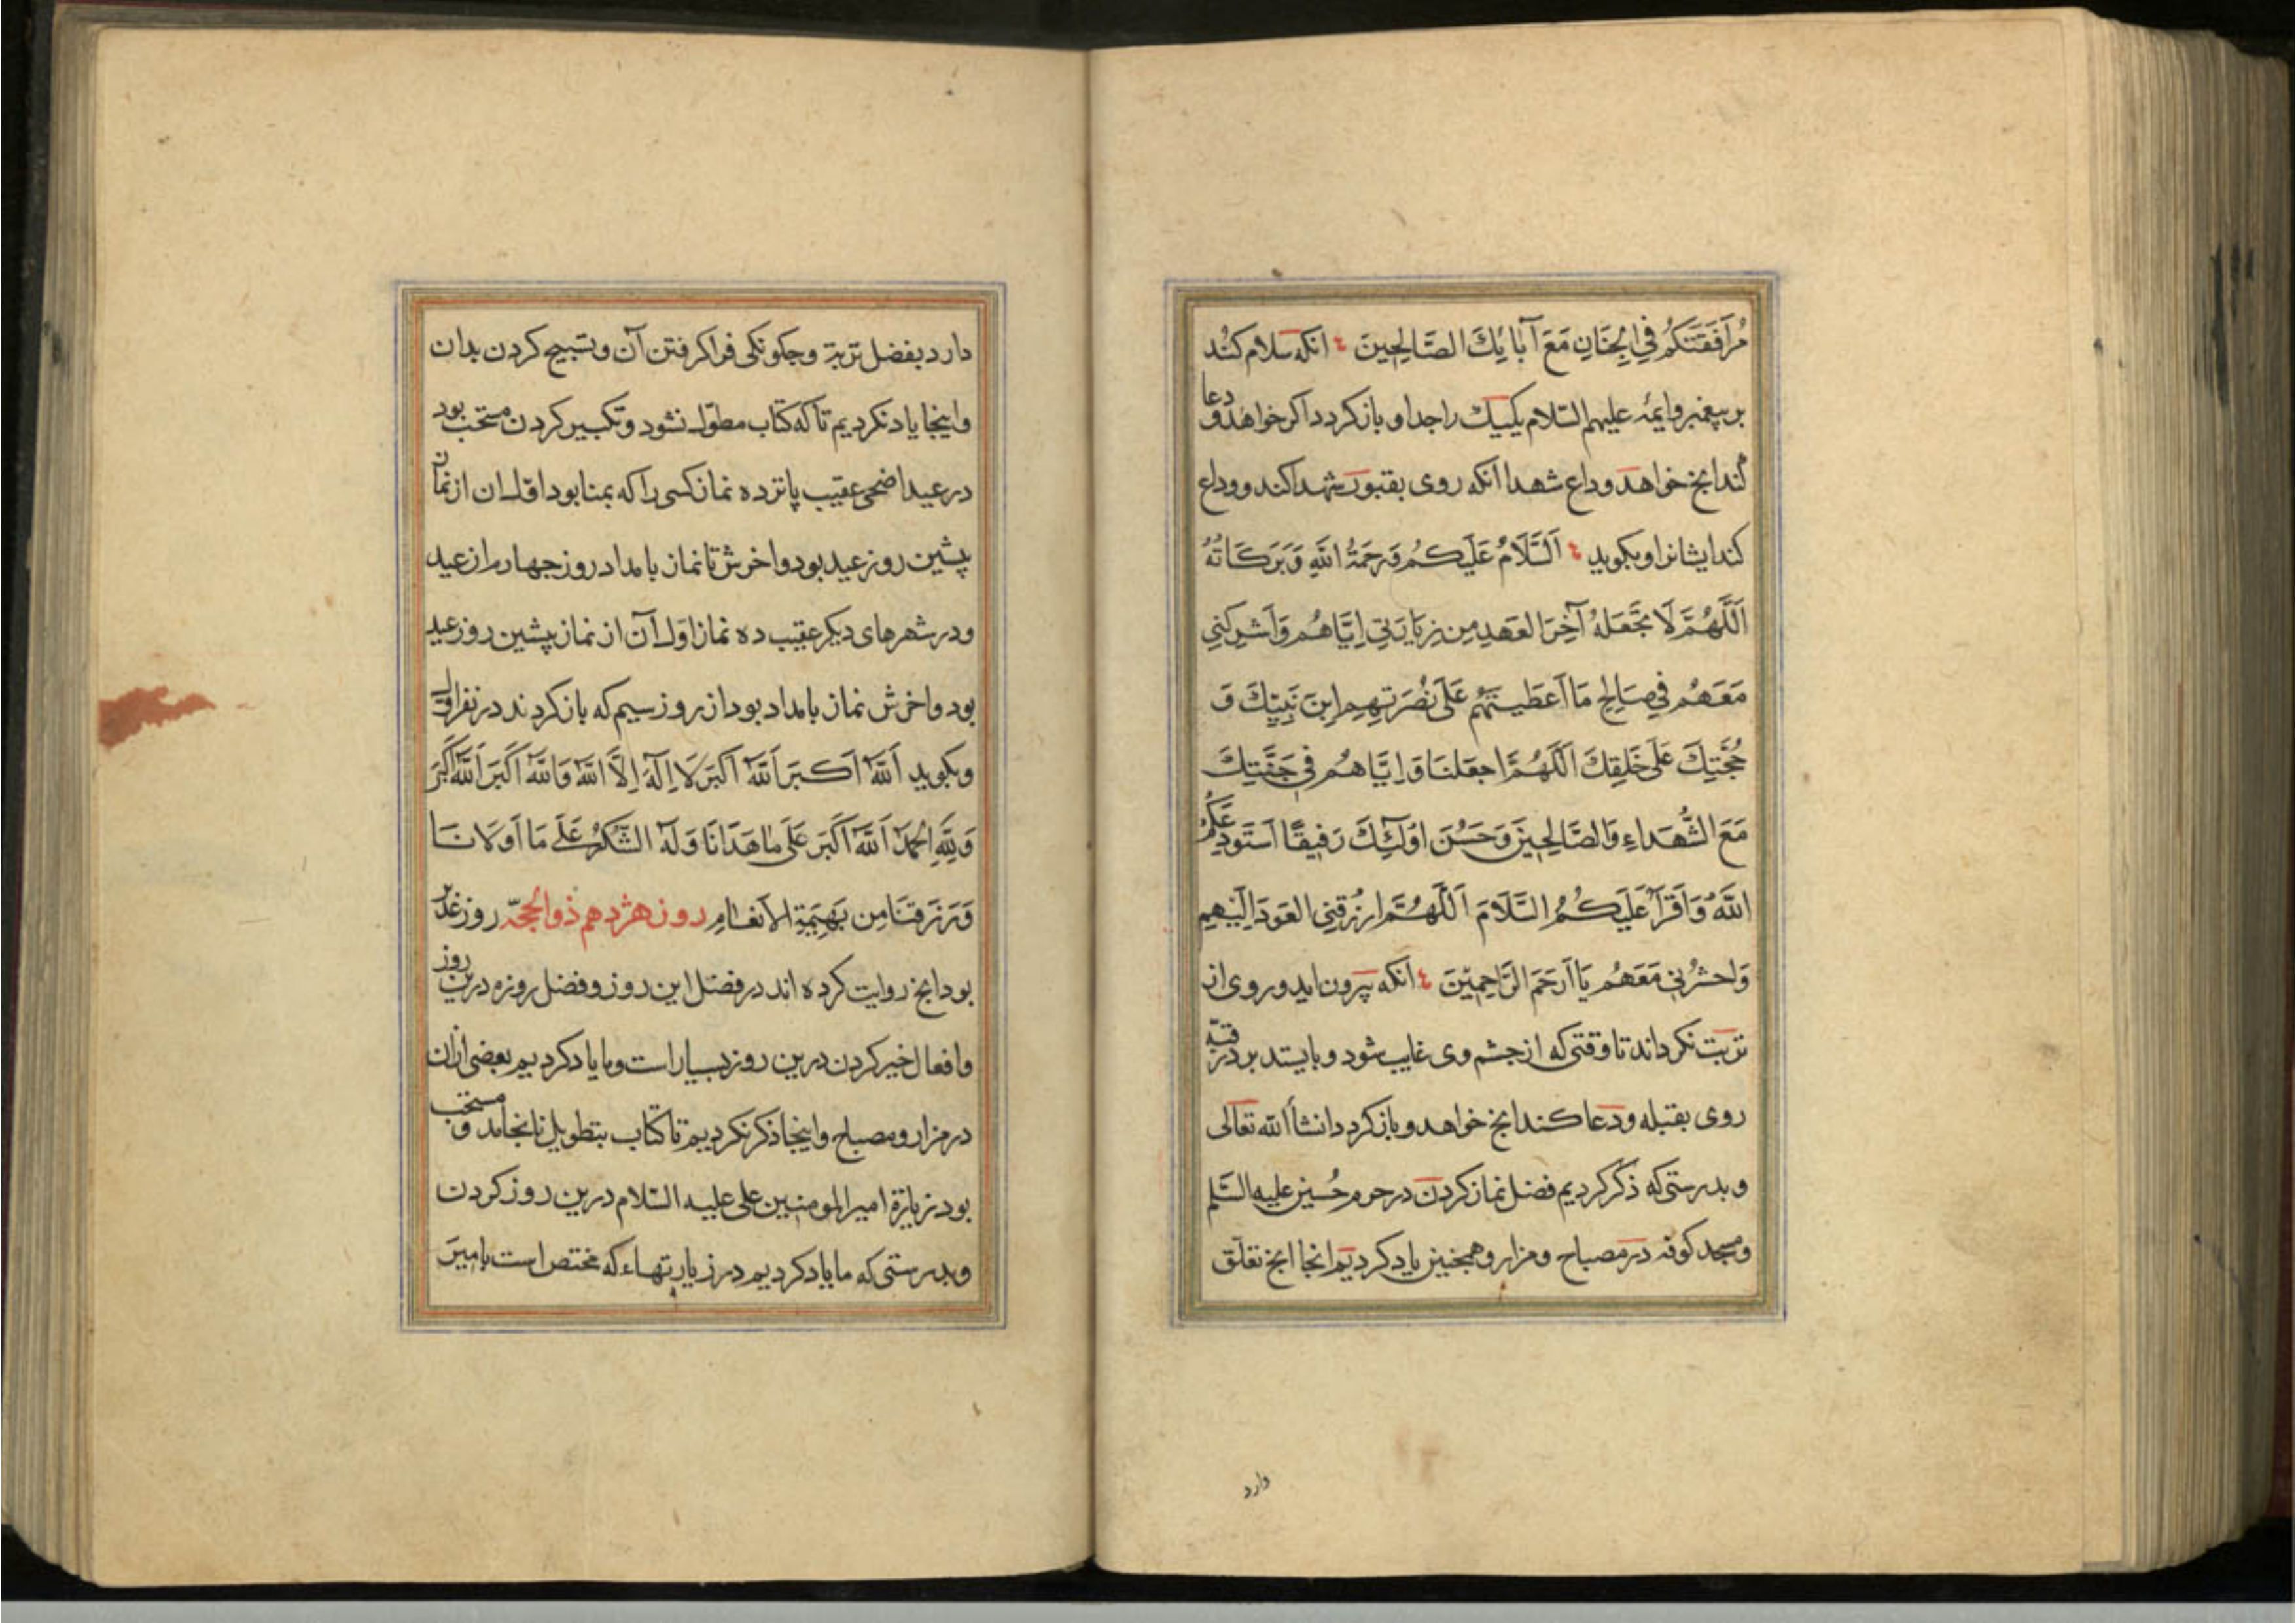 مُرَافَقَتَكُم فِي الجِنَانِ مَعَ آبَائِكَ الصَّالِحِينَ انكه سلام كند
بر پیغمبر وایمّه علیهم السّلام یكیك را جدا و بازكردد اكر خواهد و دعا
كند انج خواهد وداع شهدا انكه روی بقبور شهدا كند و وداع
كند ایشانرا و بكوید اَلسَّلَامُ عَلَيكُم وَرَحمَةُ اللهِ وَبَرَكَاتُهُ
اَللَّهُمَّ لَا تَجعَلهُ آخِرَ العَهدِ مِن زِيَارَتِي اِيَّاهُم وَاَشرِكنِي
مَعَهُم فِي صَالِحِ مَا اَعطَيتَهُم عَلَى نُصرَتِهِم اِبنَ نَبِيِّكَ وَ
حُجَّتِكَ عَلَى خَلقِكَ اَللَّهُمَّ اجعَلنَا وَاِيَّاهُم فِي جَنَّتِكَ
مَعَ الشُّهَدَاءِ وَالصَّالِحِينَ وَحَسُنَ اُولٰئِكَ رَفِيقًا اَستَودِعُكُمُ
اللهَ وَاَقرَأُ عَلَيكُمُ السَّلَامَ اَللَّهُمَّ ارزُقنِي العَودَ اِلَيهِم
وَاحشُرنِي مَعَهُم يَا اَرحَمَ الرَّاحِمِينَ انكه بیرون اید و روی از
تربت نكرداند تا وقتی كه از جشم وی غایب شود و بایستد بر در قبّه
روی بقبله و دعا كند انج خواهد و بازكردد انشأ الله تعالی
و بدرستی كه ذكر كردیم فضل نماز كردن در حرم حُسین علیه السّلم
و مسجد كوفه در مصباح و مزار و همجنین یاد كردیم انجا انج تعلّق
دارد
دارد بفضل تربة و جكونكی فراكرفتن آن و تسبیح كردن بدان
و اینجا یاد نكردیم تا كه كتاب مطوّل نشود و تكبیر كردن مستحب بود
در عید اضحی عقیب پانزده نماز كسی را كه بمنا بود اوّل ان از نماز
پشین روز عید بود و اخرش تا نماز بامداد روز جهارم از عید
و در شهرهای دیكر عقیب ده نماز اوّل آن از نماز پشین روز عید
بود و اخرش نماز بامداد بود از روز سیم كه بازكردند در نفر اوّل
و بكوید اَللهُ اَكبَرُ اَللهُ اَكبَرُ لَا اِلٰهَ اِلَّا اللهُ وَاللهُ اَكبَرُ اَللهُ اَكبَرُ
وَلِلّٰهِ الحَمدُ اَللهُ اَكبَرُ عَلَى مَا هَدَانَا وَلَهُ الشُّكرُ عَلَى مَا اَولَانَا
وَرَزَقَنَا مِن بَهِيمَةِ الاَنعَامِ روز هژدهم ذو الحجّه روز غدیر
بود انج روایت كرده اند در فضل این روز و فضل روزه درین روز
و افعال خیر كردن درین روز بسیار است و ما یاد كردیم بعضی ازان
در مزار و مصباح و اینجا ذكر نكردیم تا كتاب بتطویل نانجامد و مستحب
بود زیارة امیر المومنین علی علیه السّلام درین روز كردن
و بدرستی كه ما یاد كردیم در زیارتهاء كه مختص است بامیر